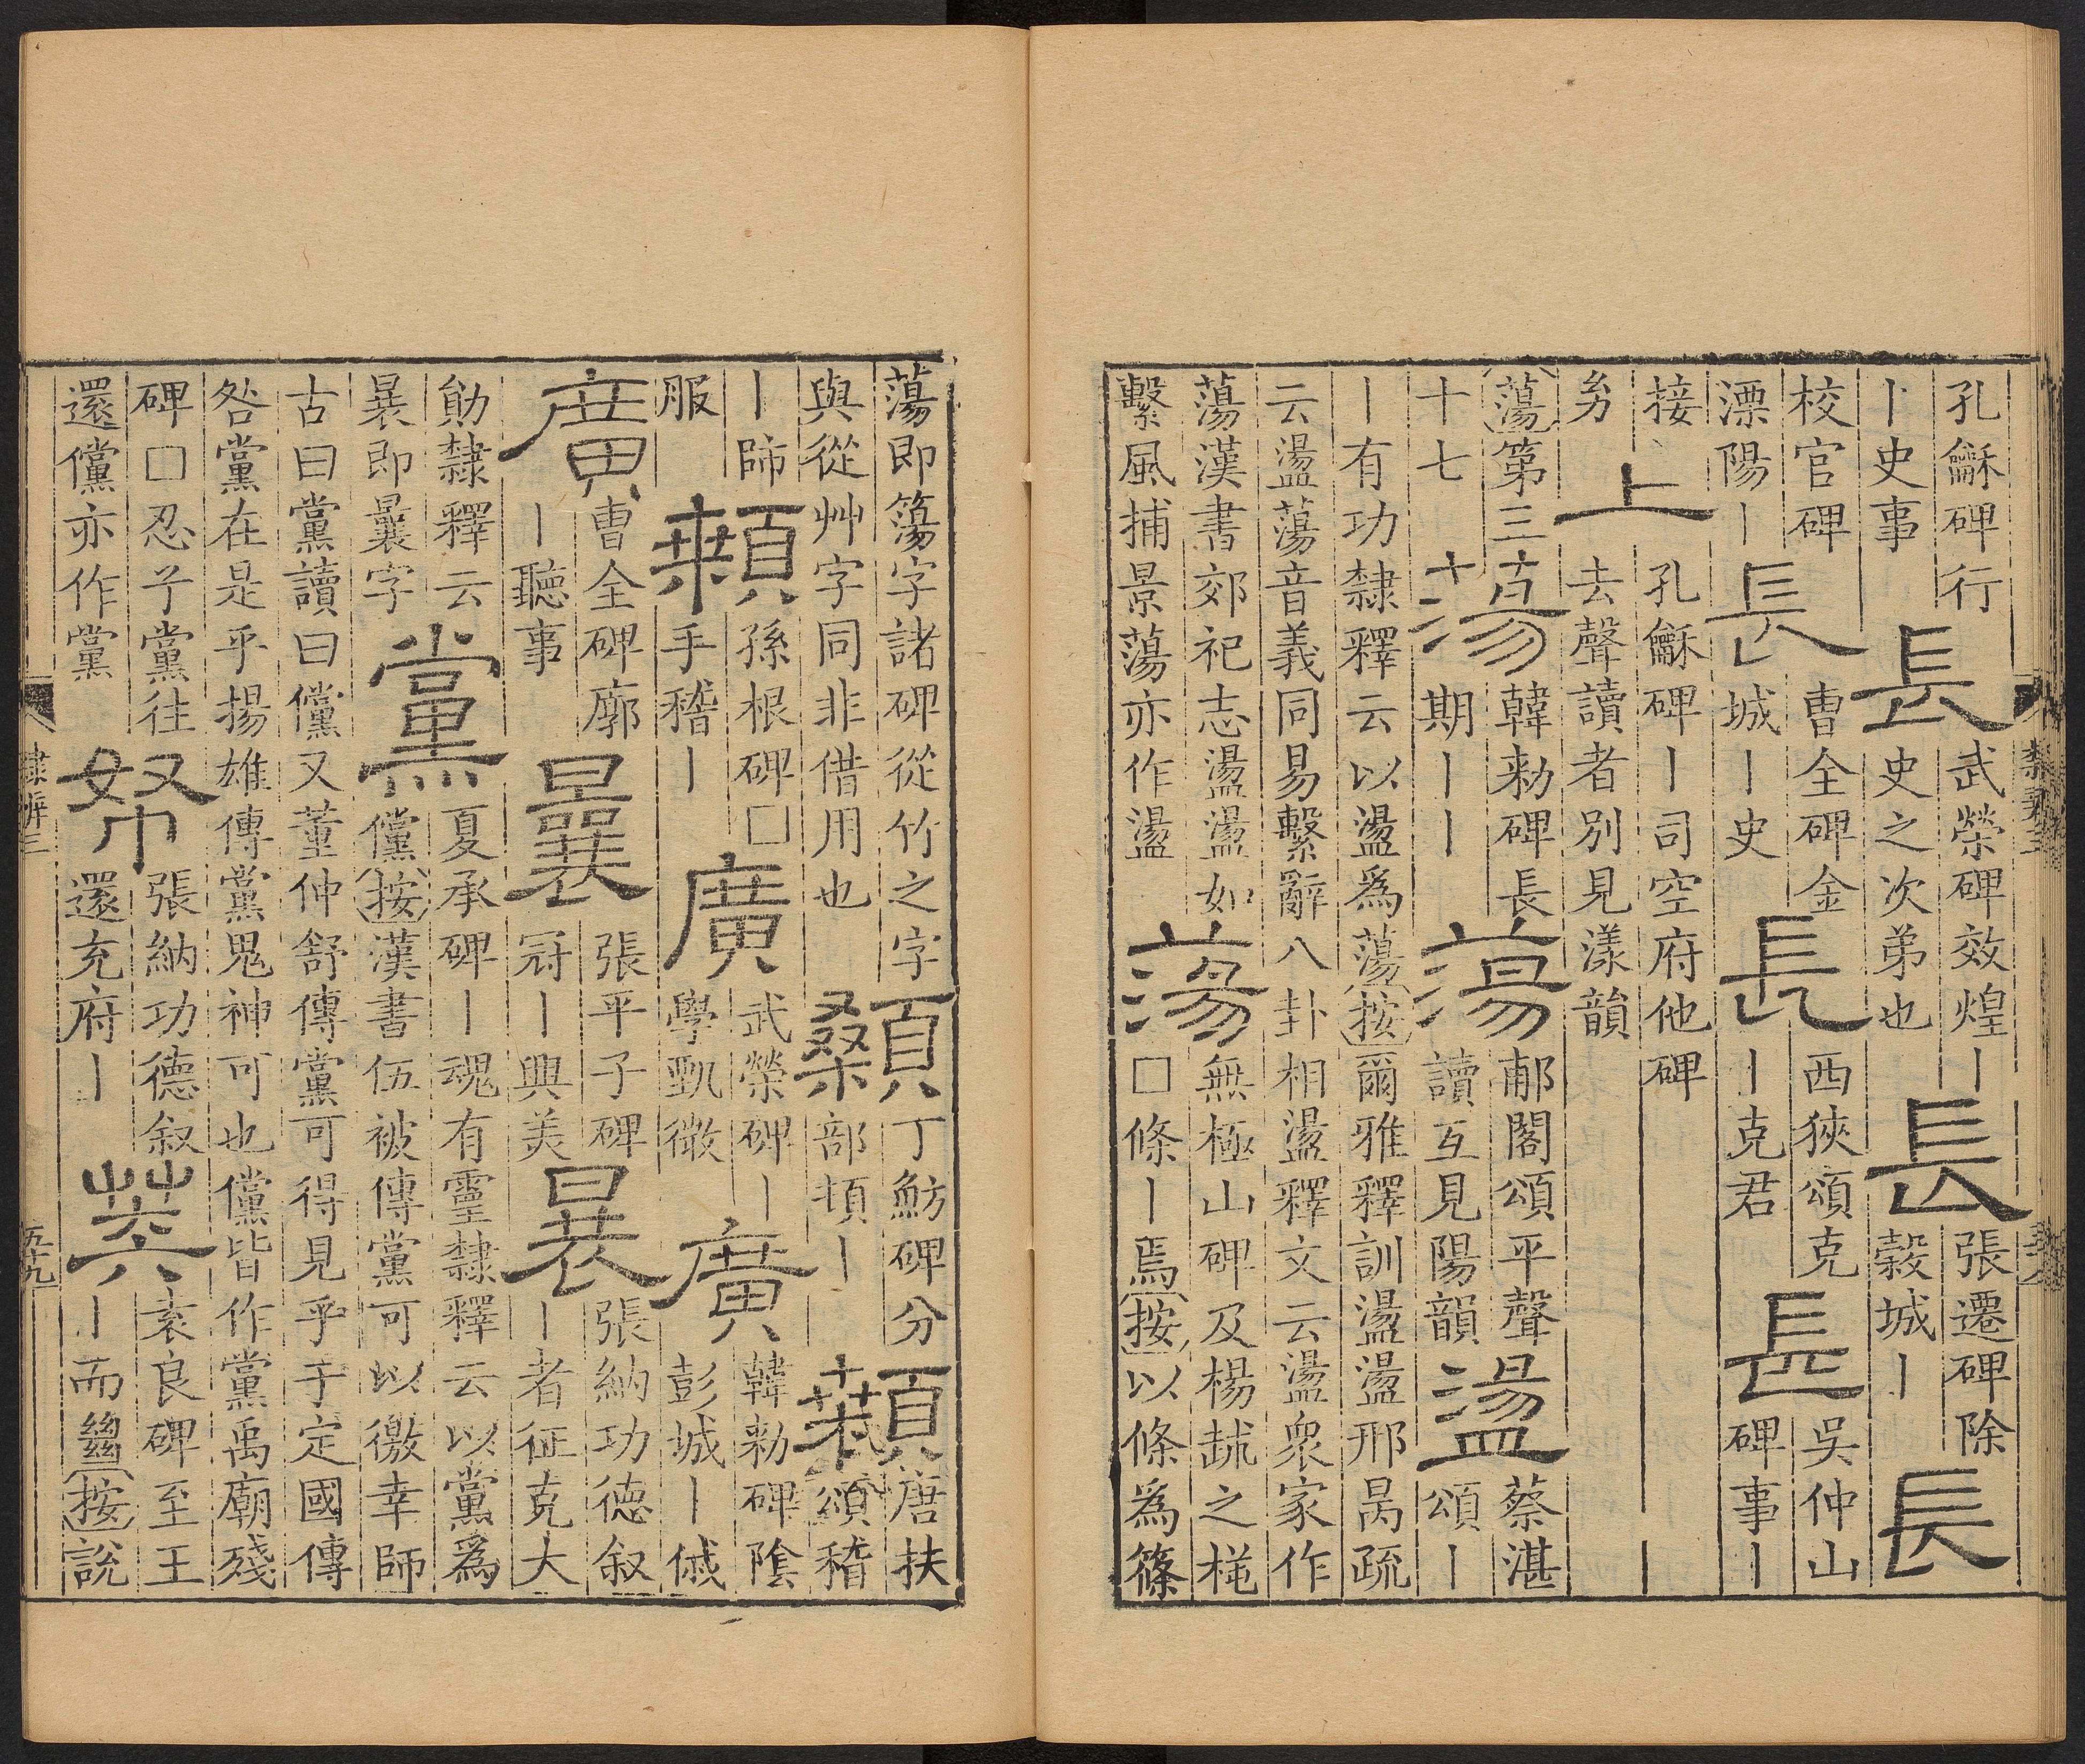 孔龢碑行丨史事長武榮碑效煌丨史之次弟也長張遷碑除穀城丨長
校官碑溧陽丨長曹全碑金城丨史長西狹頌克丨克君長吳仲山碑事丨
接上孔龢碑丨司空府他碑丨去聲讀者別見漾韻
蕩第三十七蕩韓勑碑長期丨丨蕩郙閣頌平聲讀互見陽韻盪蔡湛頌丨
丨有功隸釋云以盪爲蕩按爾雅釋訓盪盪邢昺疏云盪蕩音義同易繫辭八卦相盪釋文云盪衆家作
蕩漢書郊祀志盪盪如繫風捕景蕩亦作盪蕩無極山碑及楊之□條丨焉按以條爲篠
蕩即簜字諸碑從竹之字與從艸字同非借用也顙丁魴碑分部頓丨顙唐扶頌稽
丨師服顙孫根碑□手稽丨廣武榮碑丨學甄微廣韓勑碑陰彭城丨
廣曹全碑廓丨聽事曩張平子碑冠丨興美曩張納功德叙丨者征克大
勛隸釋云曩即曩字黨夏承碑丨魂有靈隸釋云以黨爲儻按漢書伍被傳黨可以徼幸師
古曰黨讀曰儻又董仲舒傳黨可得見乎于定國傳咎黨在是乎揚雄傳黨鬼神可也儻皆作黨禹廟殘
碑□忍子黨往還儻亦作黨帑張納功德叙還充府丨莽袁良碑至王丨而按說
隸辨三
五十九